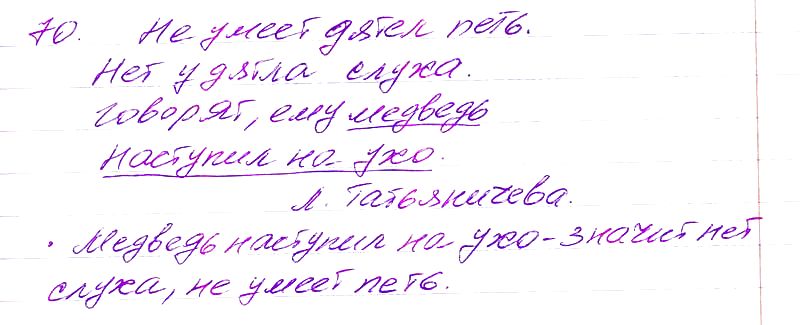 70. Не умеет дятел петь.
Нет у дятла слуха.
Говорят, ему медведь
Наступил на ухо.
Л. Татьяничева.
• Медведь наступил на ухо - значит нет
слуха, не умеет петь.